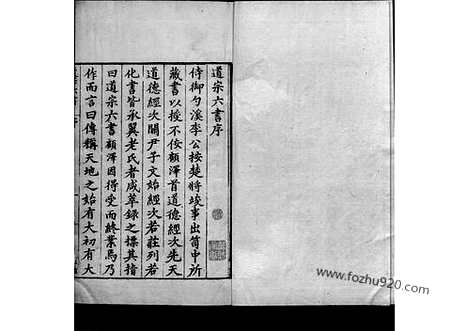 道宗六書序
侍御勺溪李公按楚將竣事出笥中所
藏書以授不佞顧澤首道德經次先天
道德經次關尹子文始經次若莊列若
化書皆承翼老氏者咸萃錄之標其指
曰道宗六書顧澤因得受而終業焉乃
作而言曰傳稱天地之始有大初有大
https://www.fozhu920.com/